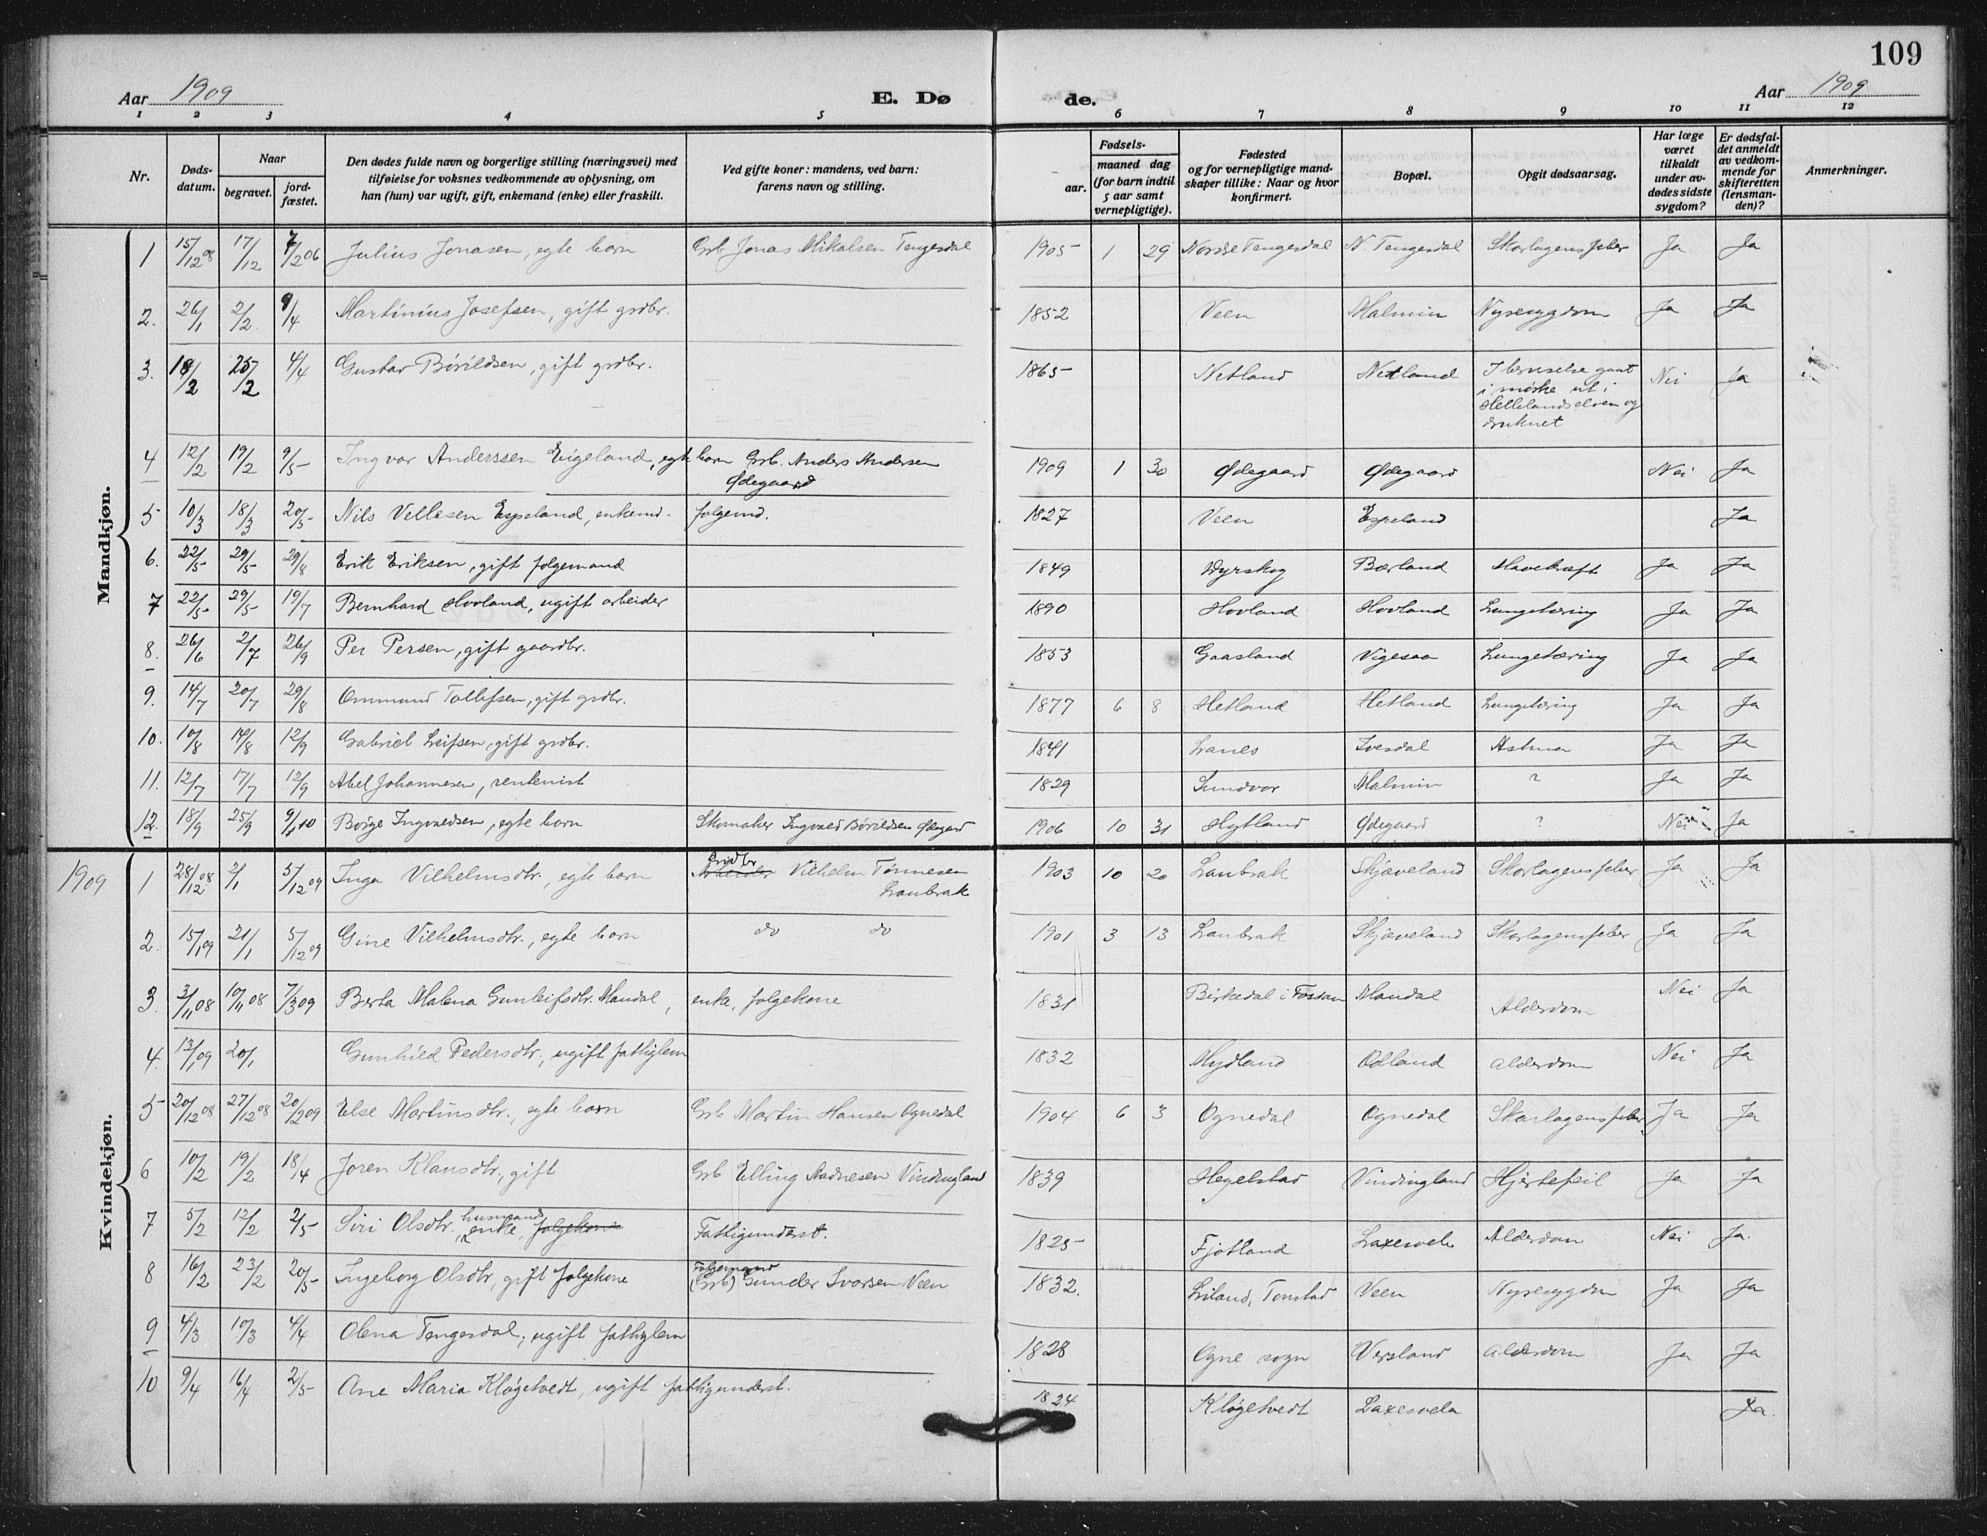 109
Aar 1909 E. Dø de. Aar 1909
1 2 3 4 5 6 7 8 9 10 11 12
Nr.
Døds-
datum.
Naar
begravet.
jord-
fæstet.
Den dødes fulde navn og borgerlige stilling (næringsvei) med
tilføielse for voksnes vedkommende av oplysning, om
han (hun) var ugift, gift, enkemand (enke) eller fraskilt.
Ved gifte koner: mandens, ved barn:
farens navn og stilling.
Fødsels-
aar.
maaned dag
(for barn indtil
5 aar samt
vernepligtige).
Fødested
og for vernepligtige mand-
skaper tillike: Naar og hvor
konfirmert.
Bopæl.
Opgit dødsaarsag.
Har læge
været
tilkaldt
under av-
dødes sidste
sygdom?
Er dødsfal-
det anmeldt
av vedkom-
mende for
skifteretten
(lensman-
den)?
Anmerkninger.
Mandkjøn.
1 15/12 08 17/12 7/2 06 Julius Jonasen, egte barn Grb. Jonas Mikalsen Tengesdal 1905 1 29 Nordre Tengesdal N. Tengesdal Skarlagensfeber Ja Ja
2. 26/1 2/2 9/4 Martinius Josefsen, gift grdbr. 1852 Veen Malmin Nyresygdom Ja Ja
3. 18/2 25/2 4/4 Gustav Børildsen, gift grdbr. 1865 Netland Netland gaat Nei Ja
i mørke ut i
Hellelandselven og
druknet
4 12/2 19/2 9/5 Ingvar Anderssen Eigeland, egte barn Grb. Anders Andersen 1909 1 30 Ødegaard Ødegaard Nei Ja
Ødegaard
5 10/3 18/3 20/5 Nils Vellesen Espeland, enkemd. folgemd. 1827 Veen Espeland Ja
6. 22/5 29/5 29/8 Erik Eriksen, gift folgemand 1849 Dyrskog Bærland Mavekræft Ja Ja
7 22/5 29/5 19/7 Bernhard Hovland, ugift arbeider 1890 Hovland Hovland Lungetæring Ja Ja
8. 26/6 2/7 26/9 Per Persen, gift gaardbr. 1853 Gaasland Vigesaa Lungetæring Ja Ja
9. 14/7 20/7 29/8 Ommund Tollefsen, gift grdbr. 1877 6 8 Hetland Hetland Lungetæring Ja Ja
10. 10/8 14/8 12/9 Gabriel Leifsen, gift grdbr. 1841 Lanes Ivesdal Astma Ja Ja
11. 12/7 17/7 12/9 Abel Johannesen, rentenist 1829 Sundvor Malmin ? Ja Ja
12. 18/9 25/9 9/10 Børge Ingvaldsen, egte barn Skomaker Ingvald Børildsen Ødegaard 1906 10 31 Hytland Ødegaard ? Nei Ja
Kvindekjøn.
Grdbr
1909 1 28/12 08 2/1 5/12 09 Inga Vilhelmsdtr., egte barn Arbeider Vilhelm Tønnesen 1903 10 20 Lanbrak Skjæveland Skarlagensfeber Ja Ja
Lanbrak
2. 15/1 09 21/1 5/12 09 Gine Vilhelmsdtr., egte barn do do 1901 3 13 Lanbrak Skjæveland Skarlagensfeber Ja Ja
3. 3/11 08 10/11 08 7/3 09 Berta Malena Gunleifsdtr. Mandal, enke, folgekone 1831 Birkedal i Fossan Mandal Alderdom Nei Ja
4. 13/1 09 20/1 Gunhild Pedersdtr., ugift fattiglem 1832 Mydland Odland Alderdom Nei Ja
5 20/12 08 27/12 08 20/2 09 Else Martinsdtr., egte barn Grb Martin Hansen Ognedal 1904 6 3 Ognedal Ognedal Skarlagensfeber Ja Ja
6 10/2 19/2 18/4 Joren Klausdtr., gift Grb Elling Aadnesen Vindingland 1839 Hegelstad Vindingland Hjertefeil Ja Ja
husmands
7 5/2 12/2 2/5 Siri Olsdtr., enke, folgekone Fattigunderst. 1825 Fjotland Laxesvela Alderdom Nei Ja.
Folgemand
8 16/2 23/2 20/5 Ingeborg Olsdtr, gift folgekone (Grb) Gunder Ivarsen Veen 1832. Liland, Tonstad Veen Nyresygdom Ja Ja
9 4/3 10/3 4/4 Olena Tengesdal, ugift fattiglem 1828 Ogne sogn Versland Alderdom Ja Ja
10 9/4 16/4 2/5 Ane Maria Kløgetvedt, ugift fattigunderst. 1824 Kløgetvedt Laxesvela Ja.